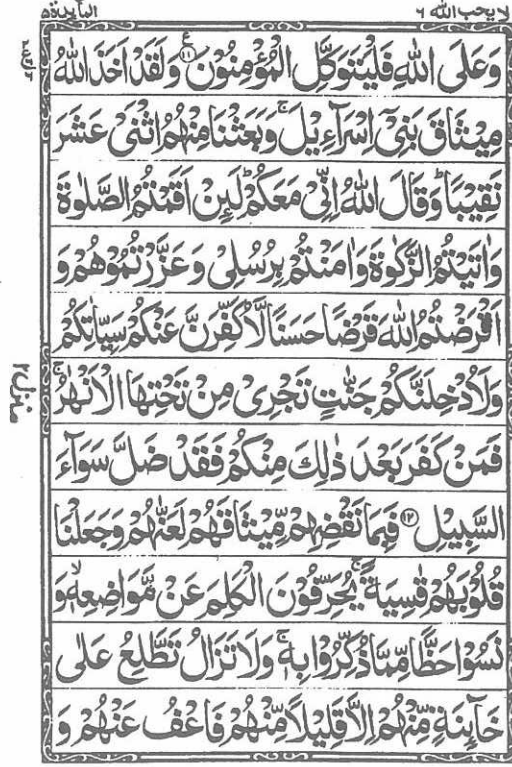 لا يحب الله ٦
المائدة ٥
وَعَلَى اللّٰهِ فَلْيَتَوَكَّلِ الْمُؤْمِنُوْنَ ۝۱۱ ع وَلَقَدْ اَخَذَ اللّٰهُ
مِيْثَاقَ بَنِيْۤ اِسْرَآءِيْلَ ۚ وَبَعَثْنَا مِنْهُمُ اثْنَيْ عَشَرَ
نَقِيْبًا ؕ وَقَالَ اللّٰهُ اِنِّيْ مَعَكُمْ ؕ لَىِٕنْ اَقَمْتُمُ الصَّلٰوةَ
وَاٰتَيْتُمُ الزَّكٰوةَ وَاٰمَنْتُمْ بِرُسُلِيْ وَعَزَّرْتُمُوْهُمْ وَ
اَقْرَضْتُمُ اللّٰهَ قَرْضًا حَسَنًا لَّاُكَفِّرَنَّ عَنْكُمْ سَيِّاٰتِكُمْ
وَلَاُدْخِلَنَّكُمْ جَنّٰتٍ تَجْرِيْ مِنْ تَحْتِهَا الْاَنْهٰرُ ۚ
فَمَنْ كَفَرَ بَعْدَ ذٰلِكَ مِنْكُمْ فَقَدْ ضَلَّ سَوَآءَ
السَّبِيْلِ ۝۱۲ فَبِمَا نَقْضِهِمْ مِّيْثَاقَهُمْ لَعَنّٰهُمْ وَجَعَلْنَا
قُلُوْبَهُمْ قٰسِيَةً ۚ يُحَرِّفُوْنَ الْكَلِمَ عَنْ مَّوَاضِعِهٖ ۙ وَ
نَسُوْا حَظًّا مِّمَّا ذُكِّرُوْا بِهٖ ۚ وَلَا تَزَالُ تَطَّلِعُ عَلٰى
خَآىِٕنَةٍ مِّنْهُمْ اِلَّا قَلِيْلًا مِّنْهُمْ فَاعْفُ عَنْهُمْ وَ
منزل ۲